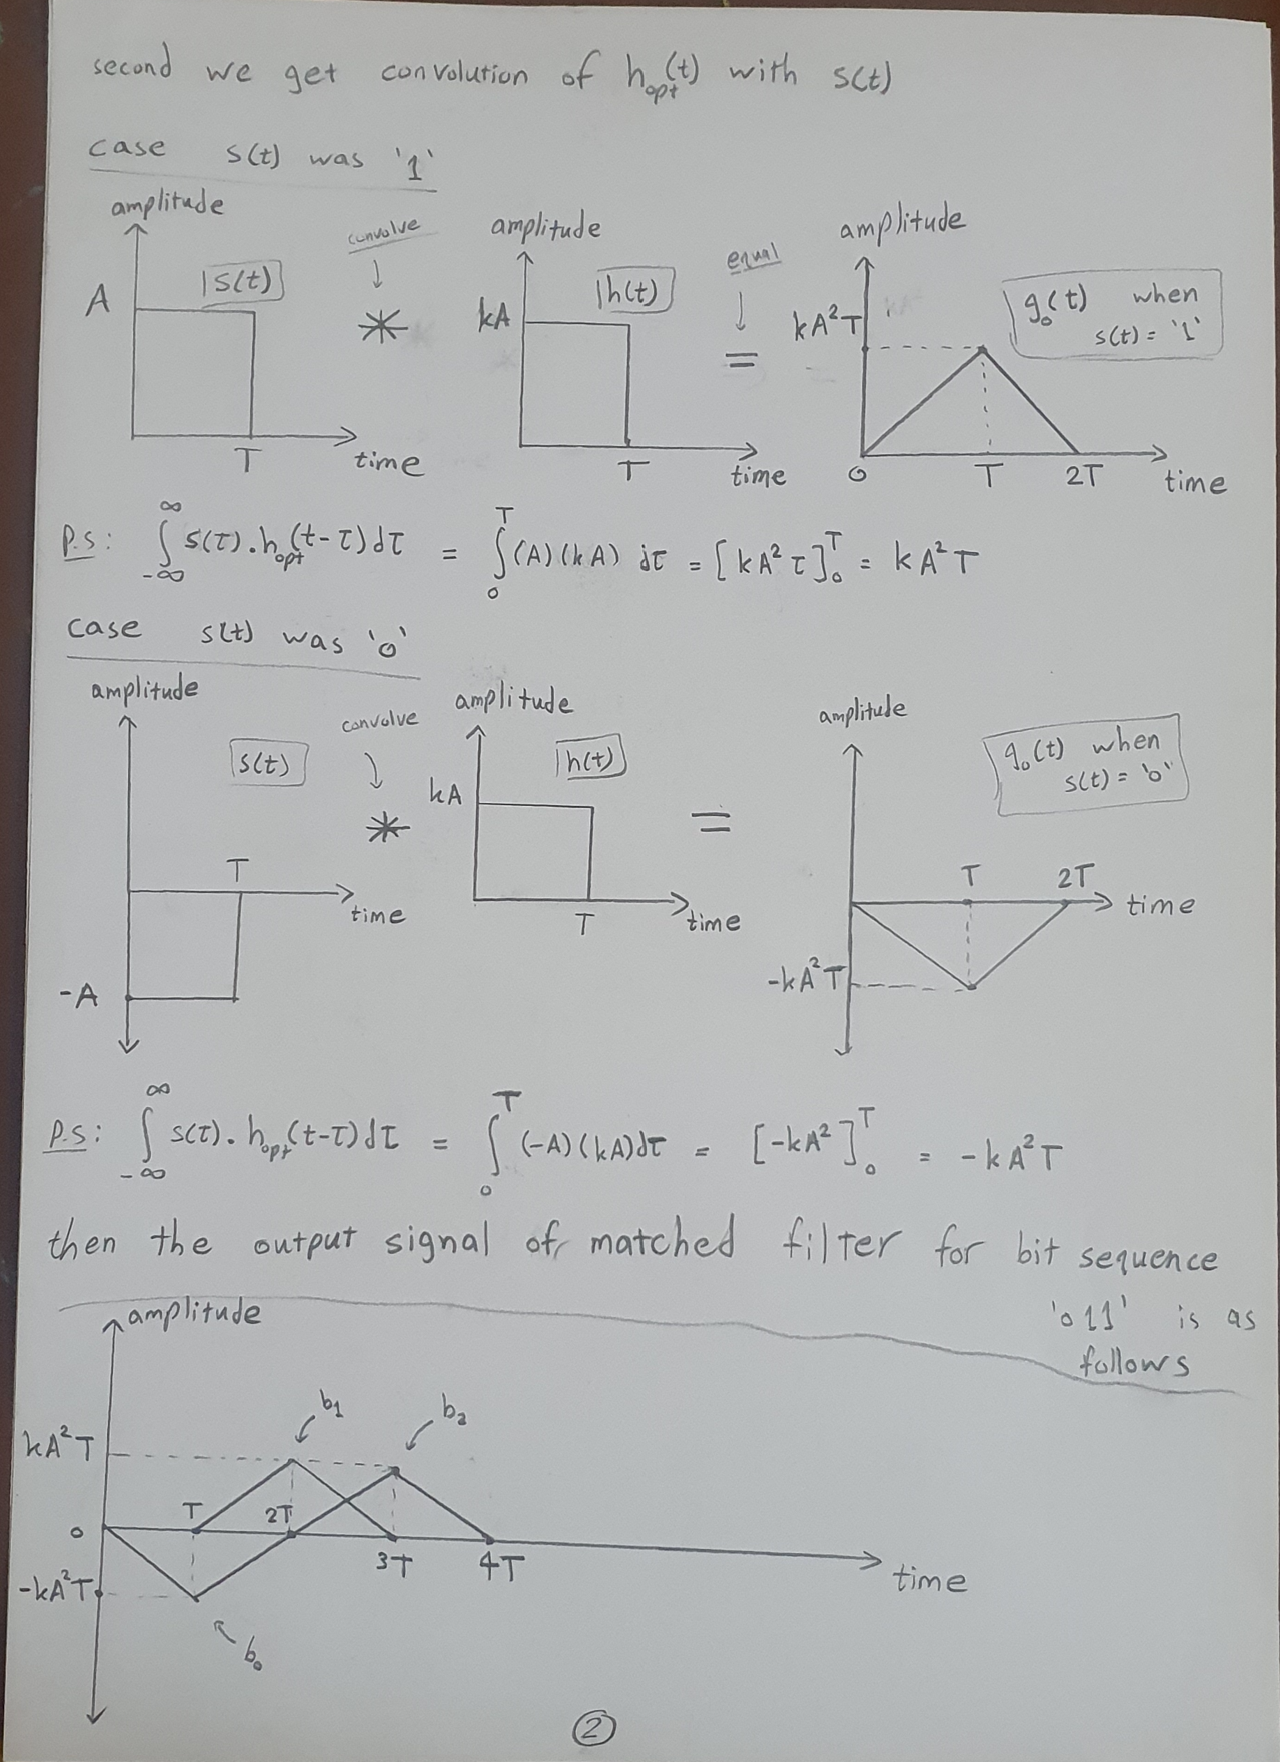 second we get convolution of h_opt(t) with s(t)
case s(t) was '1'
amplitude
A
s(t)
T
time
convolve
*
amplitude
kA
h(t)
T
time
equal
=
amplitude
kA²T
0
T
2T
time
g₀(t) when
s(t) = '1'
P.S: ∫_{-∞}^{∞} s(τ).h_opt(t-τ)dτ = ∫_0^T (A)(kA) dτ = [kA²τ]_0^T = kA²T
case s(t) was '0'
amplitude
s(t)
T
time
-A
convolve
*
amplitude
kA
h(t)
T
time
=
amplitude
T
2T
time
-kA²T
g₀(t) when
s(t) = '0'
P.S: ∫_{-∞}^{∞} s(τ).h_opt(t-τ)dτ = ∫_0^T (-A)(kA)dτ = [-kA²]_0^T = -kA²T
then the output signal of matched filter for bit sequence
'011' is as
follows
amplitude
b₁
b₂
kA²T
T
2T
0
3T
4T
time
-kA²T
b₀
2